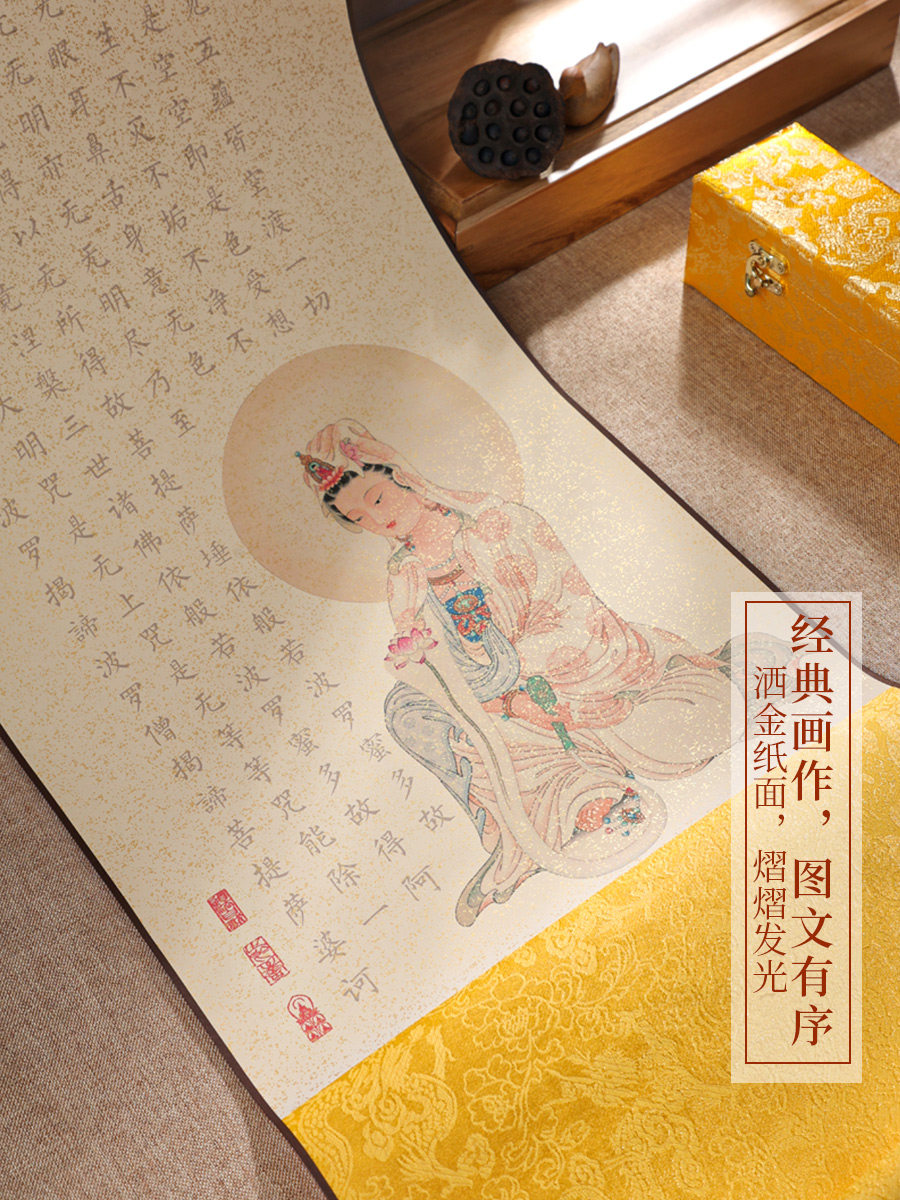 见五蕴皆空渡一切
是空空即是色受想
生不灭不垢不净不
无眼耳鼻舌身意无色
无明亦无无明尽乃至
得以无所得故菩提萨埵依般若波罗蜜多故
竟涅槃三世诸佛依般若波罗蜜多故得阿
大明咒是无上咒是无等等咒能除一
波罗揭諦波罗僧揭諦菩提萨婆诃
经典画作，图文有序
洒金纸面，熠熠发光